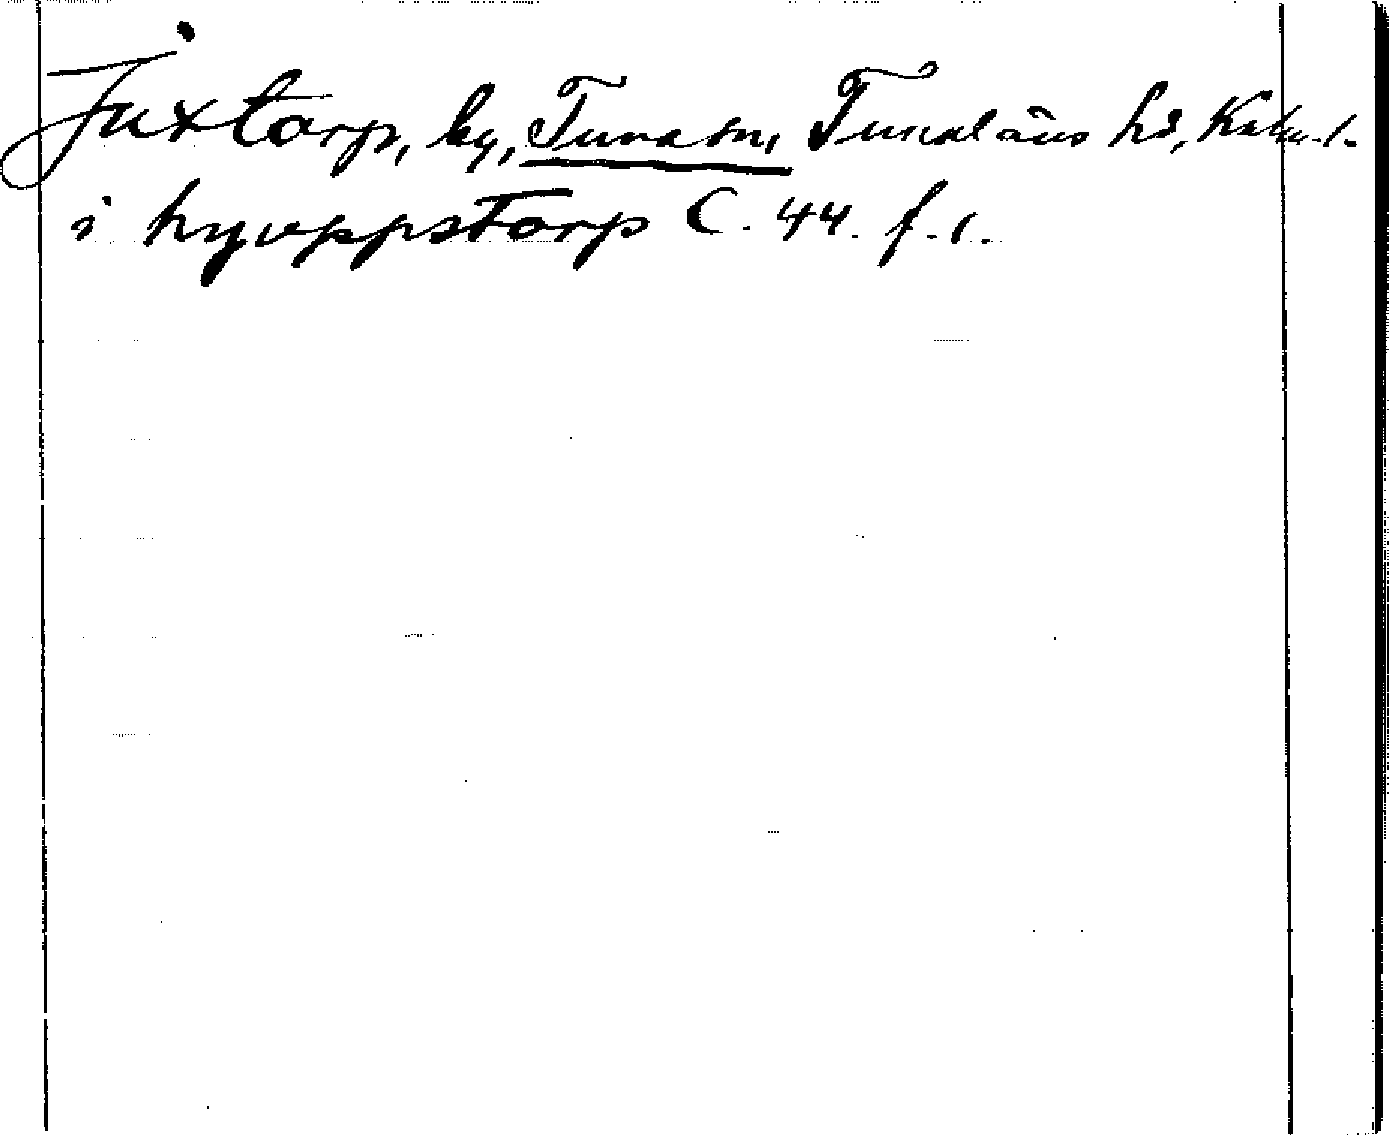 Juxtorp, by, Tuna sn, Tunaläns hd, Kalm. l.
i hyuppstorp C. 44. f. 1.